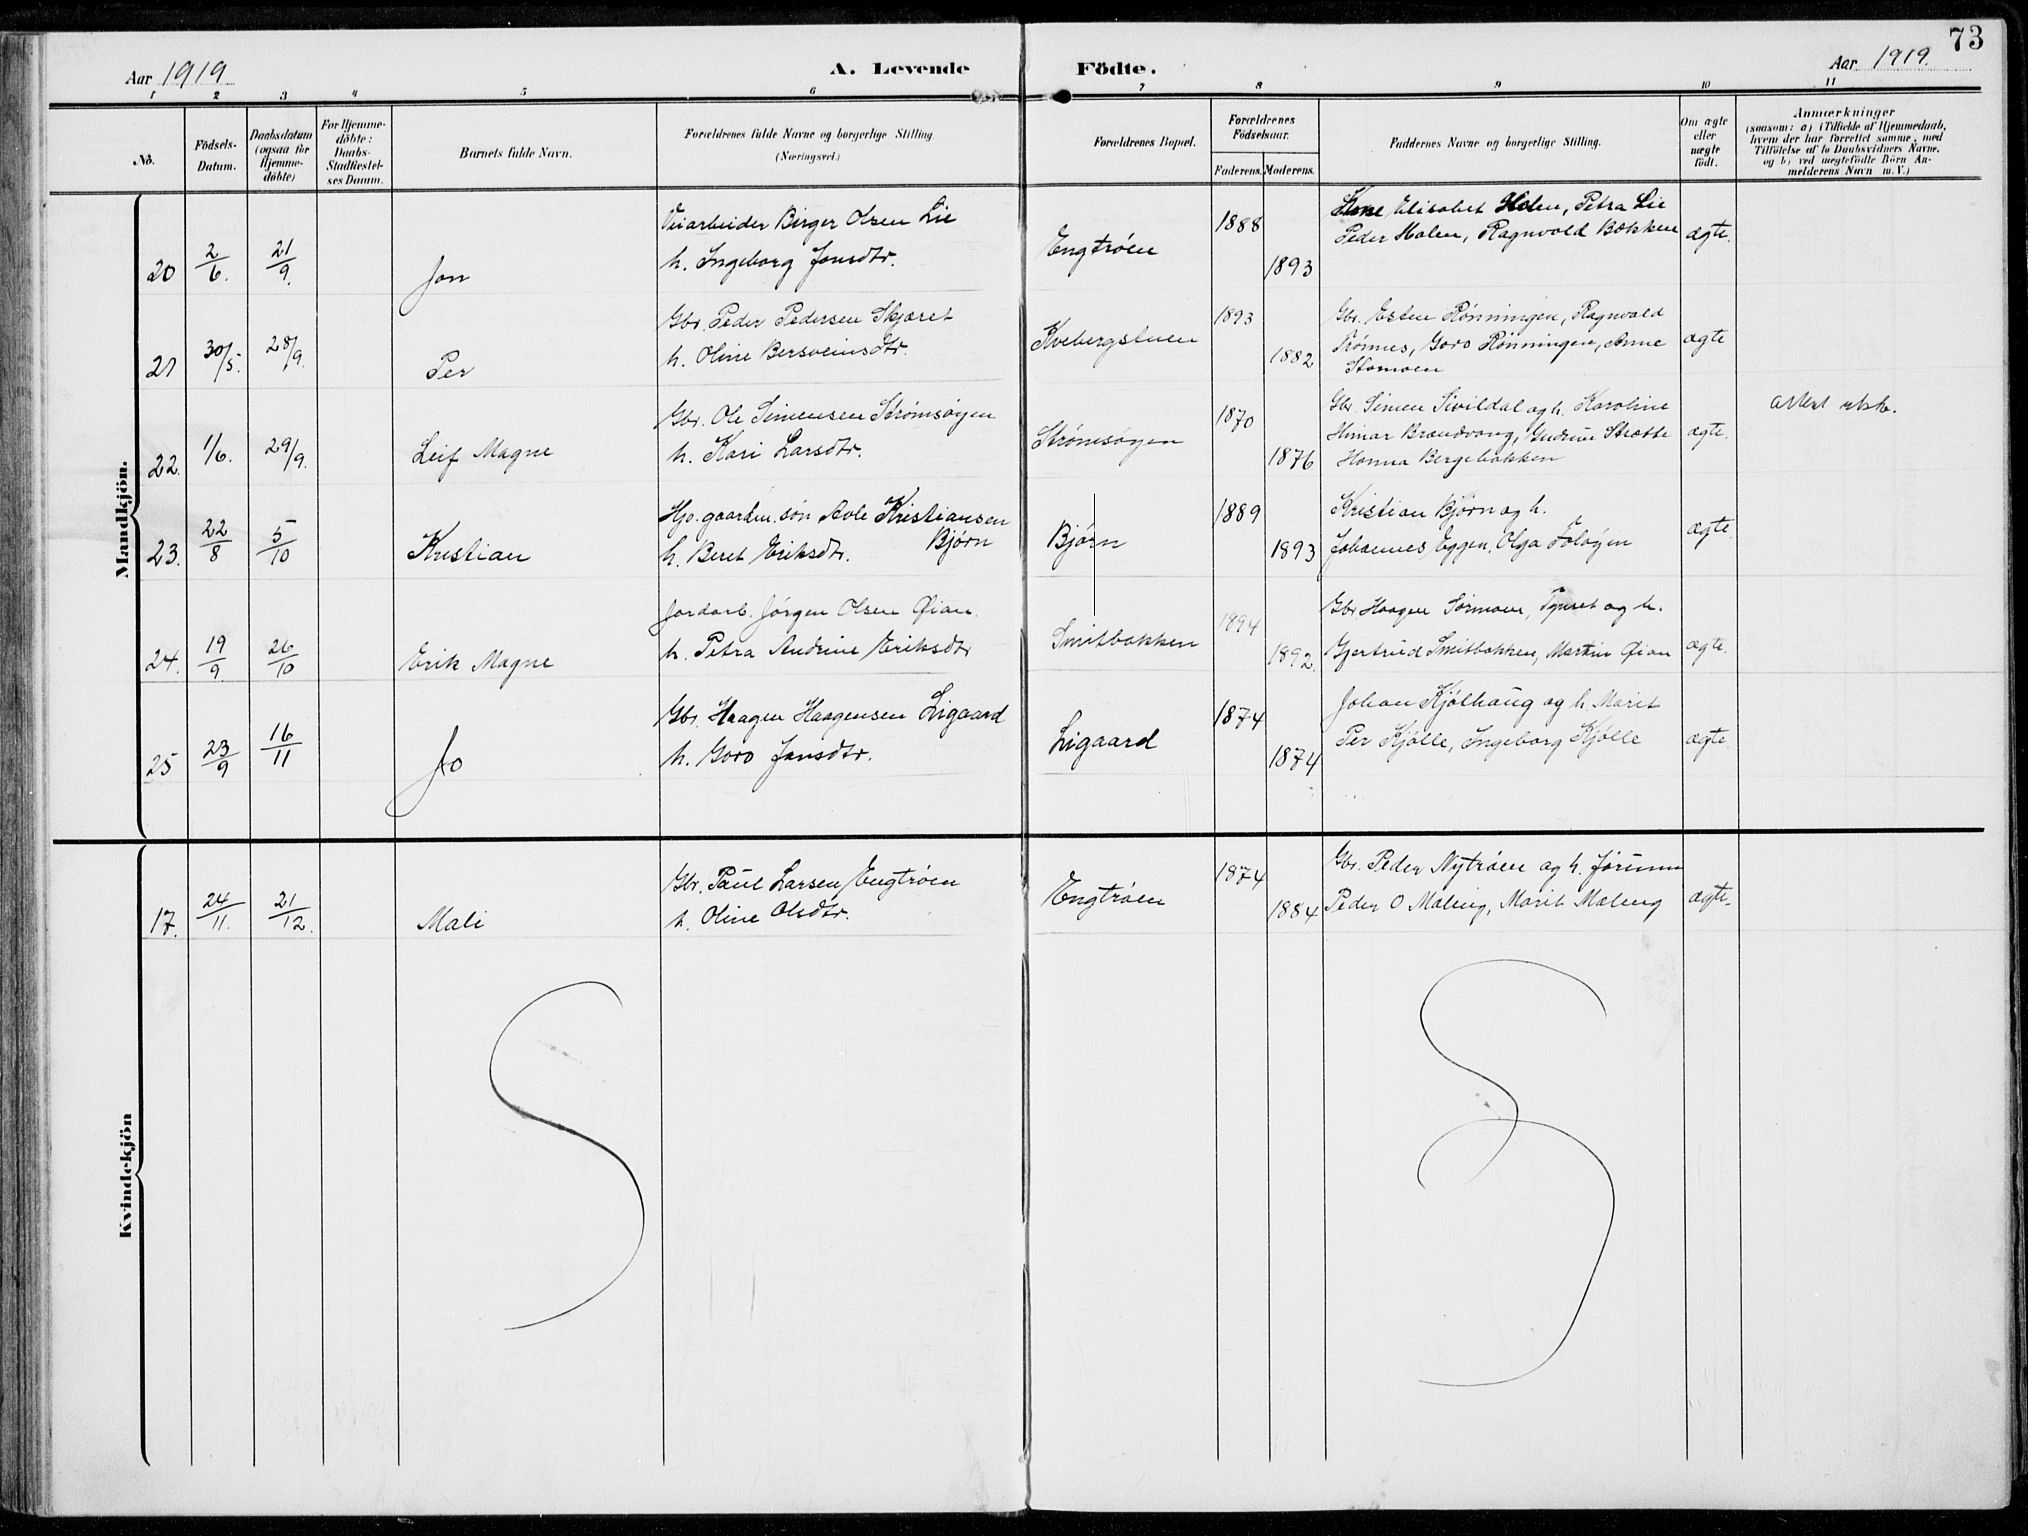 73
Aar 1919
A. Levende
Födte.
Aar 1919.
1 2 3 4 5 6 7 8 9 10 11
No.
Födsels-
Datum.
Daabsdatum
(ogsaa for
Hjemme-
döbte)
For Hjemme-
döbte:
Daabs-
Stadfæstel-
ses Datum.
Barnets fulde Navn.
Forældrenes fulde Navne og borgerlige Stilling.
(Næringsvei.)
Forældrenes Bopæl.
Forældrenes
Födselsaar.
Faderens.
Moderens.
Faddernes Navne og borgerlige Stilling.
Om ægte
eller
uægte
födt.
Anmærkninger
(saasom: a) i Tilfælde af Hjemmedaab,
hvem der har forrettet samme, med
Tilföielse af to Daabsvidners Navne,
og b) ved uægtefödte Börn An-
melderens Navn m. V.)
Mandkjön.
20 2/6. 21/9. Jon
Veiarbeider Birger Olsen Lie
h. Ingeborg Jonsdtr.
Engtrøen
1888
1893
Kone Elisabet Holen, Petra Lie
Peder Holen, Ragnvald Bakken
ægte.
21 30/5. 28/9. Per
Gbr. Peder Pedersen Skjæret
h. Oline Bersveinsdtr.
Kvebergstuen
1893
1882
Gbr. Esten Rønningen, Ragnvald
Trømes, Goro Rønningen, Anne
Stamoen
ægte
22. 1/6. 29/9. Leif Magne
Gbr. Ole Simensen Strømsøyen
h. Kari Larsdtr.
Strømsøyen
1870
1876
Gbr. Simen Sivildal og h. Karoline
Himar Brandvang, Gudrun Strætte
Hanna Bergebakken
ægte.
Attest utst.
23. 22/8 5/10 Kristian
Hjv. gaardm. søn Avle Kristiansen
h. Beret Eriksdtr. Bjørn
Bjørn
1889
1893
Kristian Bjørn og h.
Johannes Eggen, Olga Foløyen
ægte.
24. 19/9. 26/10 Erik Magne
Jordarb. Jørgen Olsen Øian.
h. Petra Andrine Eriksdtr
Smitbakken
1894
1892.
Gbr Haagen Sørmoen, Tynset og h.
Gjertrud Smitbakken, Martin Øian
ægte.
25 23/9 16/11 Jo
Gbr. Haagen Haagensen Ligaard
h. Goro Jonsdtr.
Ligaard
1874
1874
Johan Kjølhaug og h. Marit
Per Kjølle, Ingeborg Kjølle
ægte.
Kvindekjön
17. 24/11. 21/12. Mali
Gbr. Paul Larsen Engtrøen
h. Oline Olsdtr.
Engtrøen
1874
1884
Gbr. Peder Nytrøen og h. Jørunn
Peder O Mæleng, Marit Mæleng
ægte.